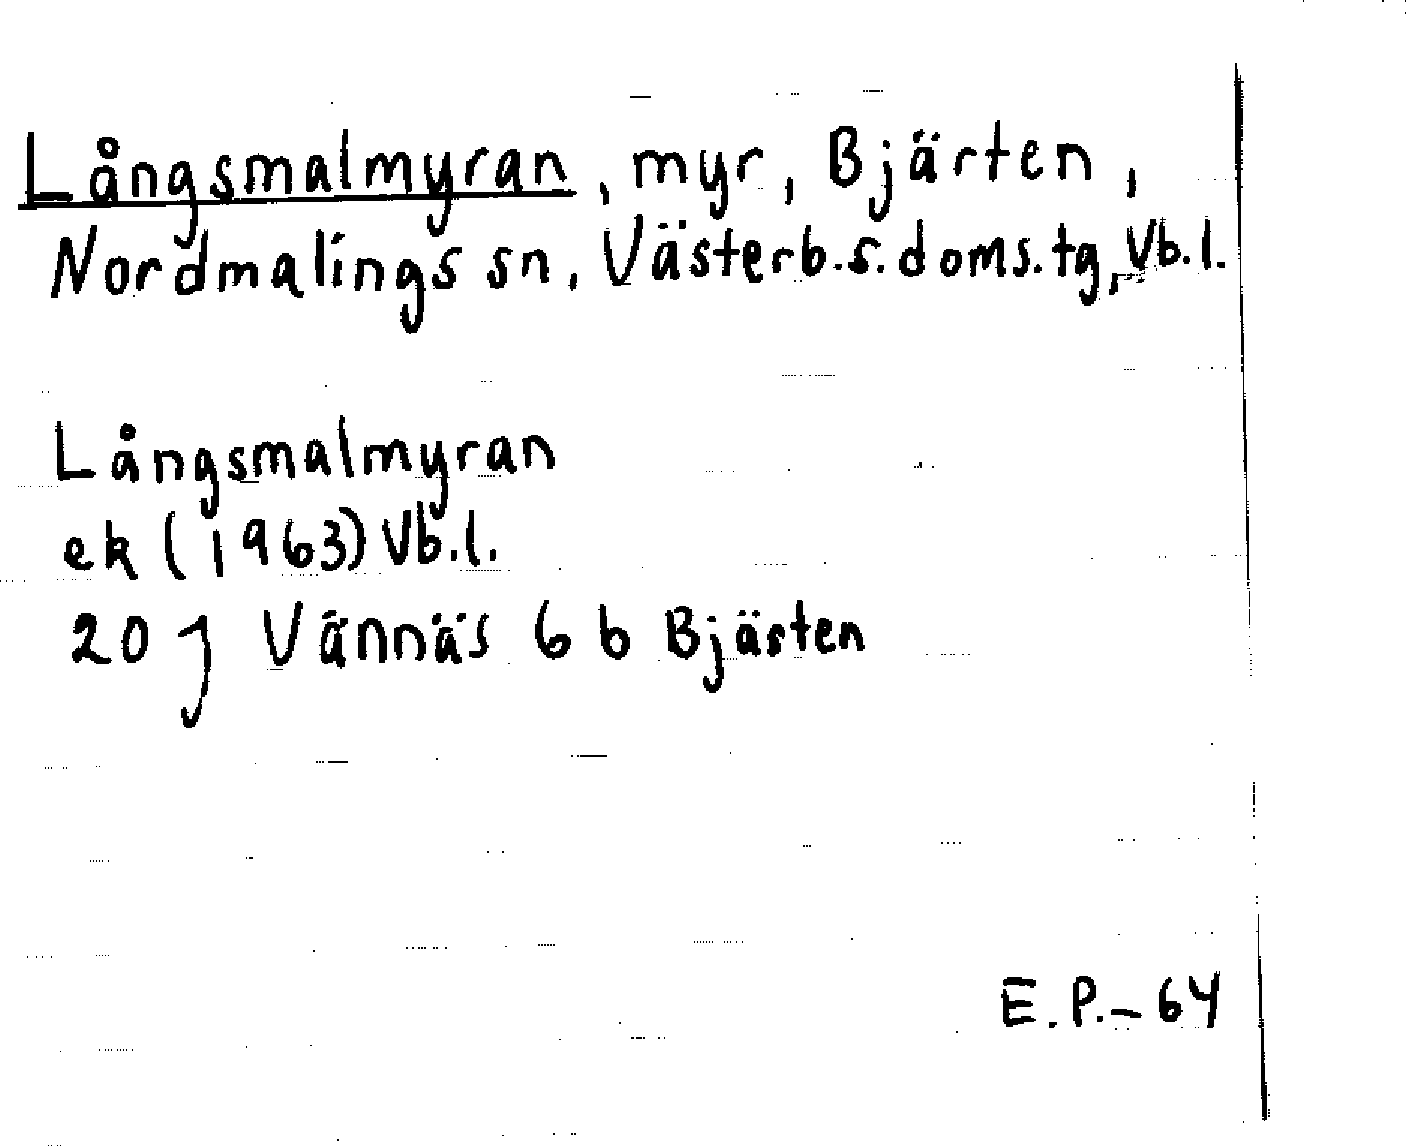 Långsmalmyran, myr, Bjärten,
Nordmalings sn, Västerb.s.doms.tg, Vb.l.
Långsmalmyran
ek (1963) Vb.l.
20 J Vännäs 6 b Bjärten
E.P.-64